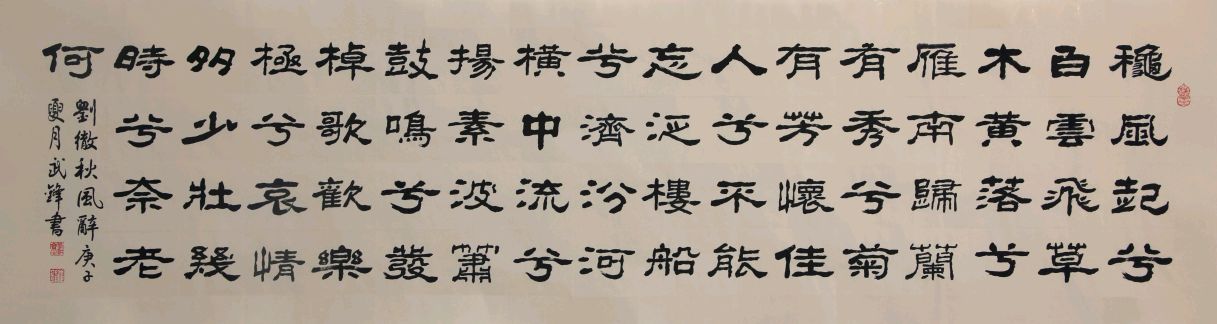 穐風起兮
白雲飛草
木黃落兮
雁南歸蘭
有秀兮菊
有芳懷佳
人兮不能
忘泛樓船
兮濟汾河
橫中流兮
揚素波簫
鼓鳴兮發
棹歌歡樂
極兮哀情
多少壯幾
時兮奈老
何
劉徹秋風辭庚子
夏月武鋒書